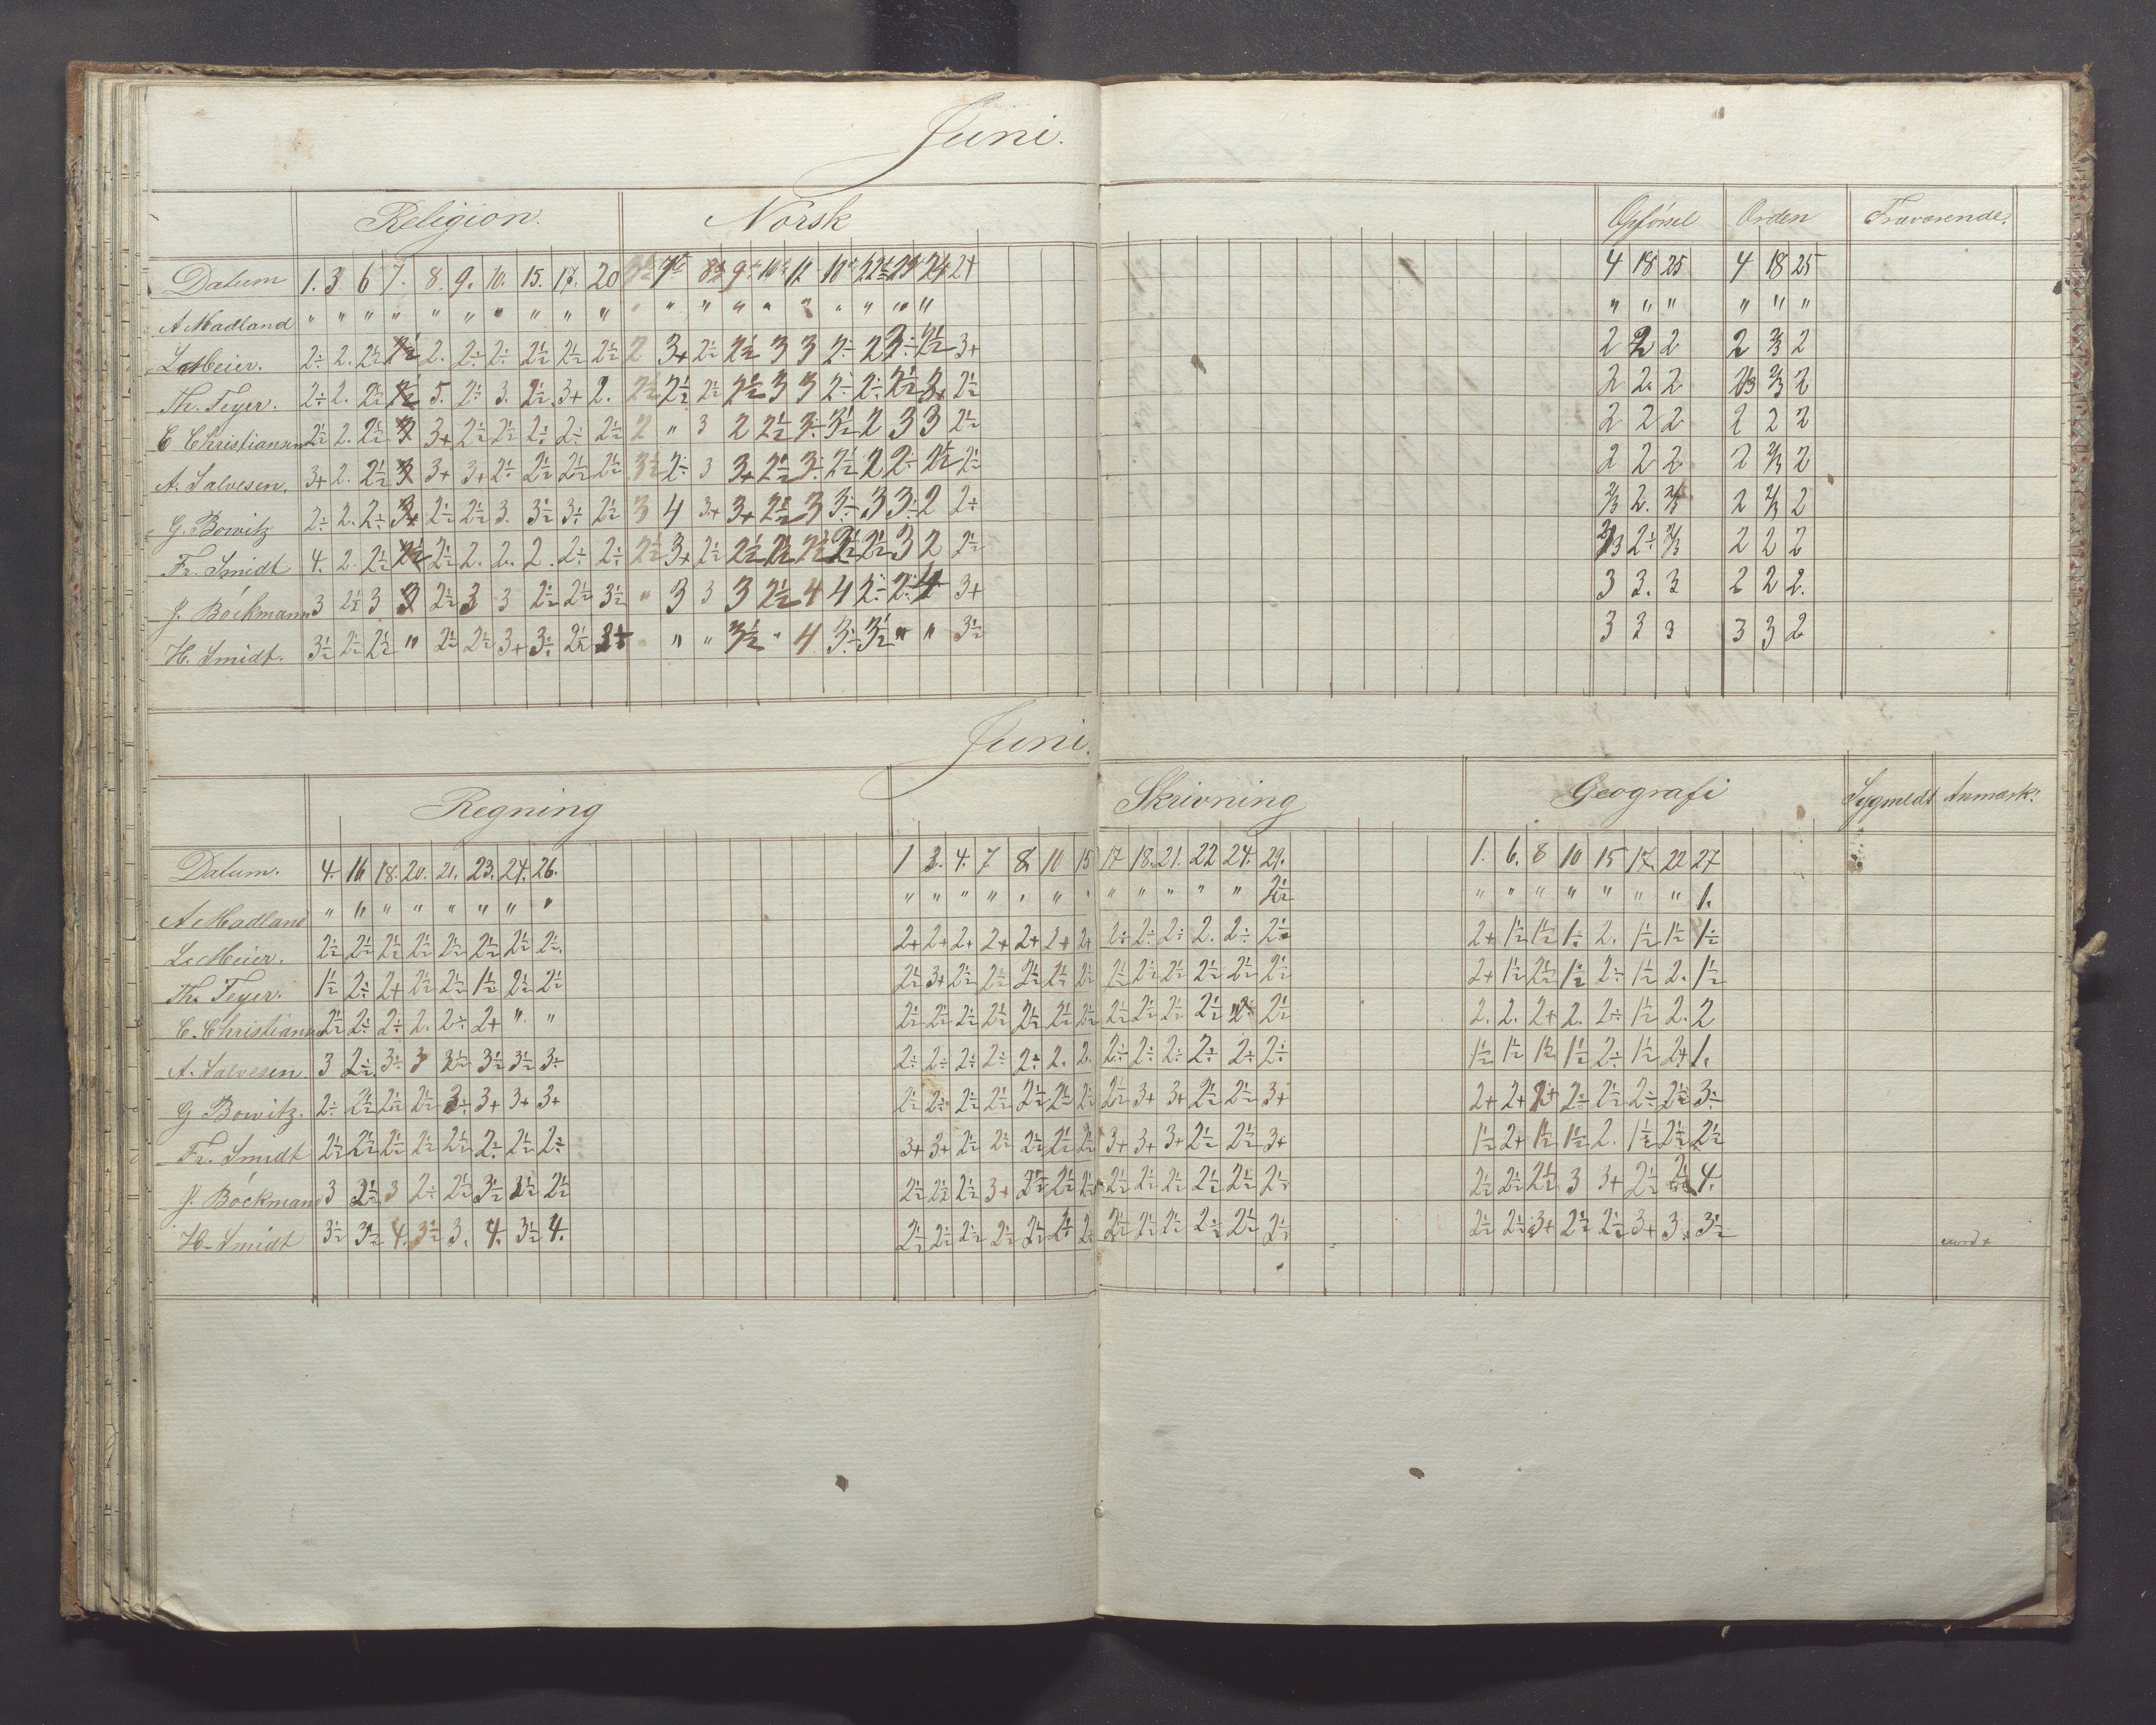 Juni.
Religion. Norsk Opförsel Orden Fraværende.
Datum 1. 3 6 7. 8. 9. 10. 15. 17. 20 4 18 25 4 18 25
A Madland " " " " " " " " " " " " " " " "
L Meier. 2÷ 2. 2½ 2½ 2. 2÷ 2÷ 2½ 2½ 2½ 2 3+ 2½ 2½ 3 3 2÷ 2 3÷ 2½ 3+ 2 2 2 2 2/3 2
Th. Feyer. 2÷ 2. 2½ 2½ 5. 2÷ 3. 2½ 3+ 2. 2½ 2½ 2½ 2½ 3 3 2÷ 2÷ 2½ 3+ 2½ 2 2. 2 2/3 2/3 2
C Christiansen 2½ 2. 2½ 3 3+ 2½ 2½ 2÷ 2÷ 2½ 2 " 3 2 2½ 3÷ 3½ 2 3 3 2½ 2 2 2 2 2 2
A. Salvesen. 3+ 2. 2½ 3 3+ 3+ 2½ 2½ 2½ 2½ 3½ 2÷ 3 3+ 2½ 3÷ 2½ 2 2÷ 2½ 2½ 2 2 2 2 2/3 2
G. Bowitz 2÷ 2. 2÷ 3+ 2½ 2½ 3. 3½ 3÷ 2½ 3 4 3+ 3+ 2½ 3 3÷ 3 3÷ 2 2÷ 2/3 2. 2/3 2 2/3 2
Fr. Smidt 4. 2. 2½ 2½ 2½ 2. 2. 2. 2÷ 2÷ 2½ 3+ 2½ 2½ 2½ 2½ 2½ 2½ 3 2 2½ 2/3 2÷ 2/3 2 2 2
J. Böckmann 3 2½ 3 3 2½ 3 3 2½ 2½ 3½ " 3 3 3 2½ 4 4 2÷ 2÷ 4 3+ 3 3. 3 2 2 2.
H. Smidt. 3½ 2½ 2½ " 2½ 2½ 3+ 3÷ 2½ 3+ " " 3½ " 4 3÷ 3½ " " 3½ 3 3 3 3 3 2
Juni.
Regning Skrivning Geografi Sygmeldt Anmærk:
Datum. 4. 16 18. 20. 21. 23. 24. 26. 1 3. 4. 7 8 10 15 17 18. 21. 22 24. 29. 1. 6. 8 10 15 17 22 27
A Madland " " " " " " " " " " " " " " " " " " " " 2½ " " " " " " " 1.
L. Meier. 2½ 2½ 2½ 2½ 2½ 2½ 2½ 2½ 2+ 2+ 2+ 2+ 2+ 2+ 2+ 2÷ 2÷ 2÷ 2. 2÷ 2½ 2+ 1½ 1½ 1÷ 2. 1½ 1½ 1½
Th. Feyer. 1½ 2÷ 2+ 2½ 2½ 1½ 2½ 2½ 2½ 3+ 2½ 2½ 2½ 2½ 2½ 2½ 2½ 2½ 2½ 2½ 2½ 2+ 1½ 2½ 1½ 2÷ 1½ 2. 1½
C. Christiansen 2½ 2÷ 2÷ 2. 2÷ 2+ " " 2½ 2½ 2½ 2½ 2½ 2½ 2½ 2½ 2½ 2½ 2½ 2½ 2½ 2. 2. 2+ 2. 2÷ 1½ 2. 2
A. Salvesen. 3 2÷ 3÷ 3 3½ 3½ 3½ 3÷ 2÷ 2÷ 2÷ 2÷ 2÷ 2. 2. 2÷ 2÷ 2÷ 2÷ 2÷ 2÷ 1½ 1½ 1½ 1½ 2÷ 1½ 2+ 1.
G Bowitz. 2÷ 2½ 2½ 2½ 3÷ 3+ 3+ 3+ 2½ 2÷ 2½ 2½ 2½ 2½ 2½ 2½ 3+ 3+ 2½ 2½ 3+ 2+ 2+ 2+ 2÷ 2½ 2÷ 2½ 3÷
Fr. Smidt 2½ 2½ 2½ 2½ 2½ 2÷ 2½ 2÷ 3+ 3+ 2½ 2½ 2½ 2½ 2½ 3+ 3+ 3+ 2½ 2½ 3+ 1½ 2+ 1½ 1½ 2. 1½ 2½ 2½
J. Böckmann 3 2½ 3 2÷ 2½ 3½ 3½ 2½ 2½ 2½ 2½ 3+ 2½ 2½ 2½ 2½ 2½ 2½ 2½ 2½ 2½ 2½ 2½ 2½ 3 3+ 2½ 4.
H. Smidt 3½ 3½ 4. 3½ 3. 4. 3½ 4. 2½ 2½ 2½ 2½ 2½ 2½ 2½ 2½ 2½ 2½ 2÷ 2½ 2½ 2½ 2½ 3+ 2½ 2½ 3+ 3. 3½